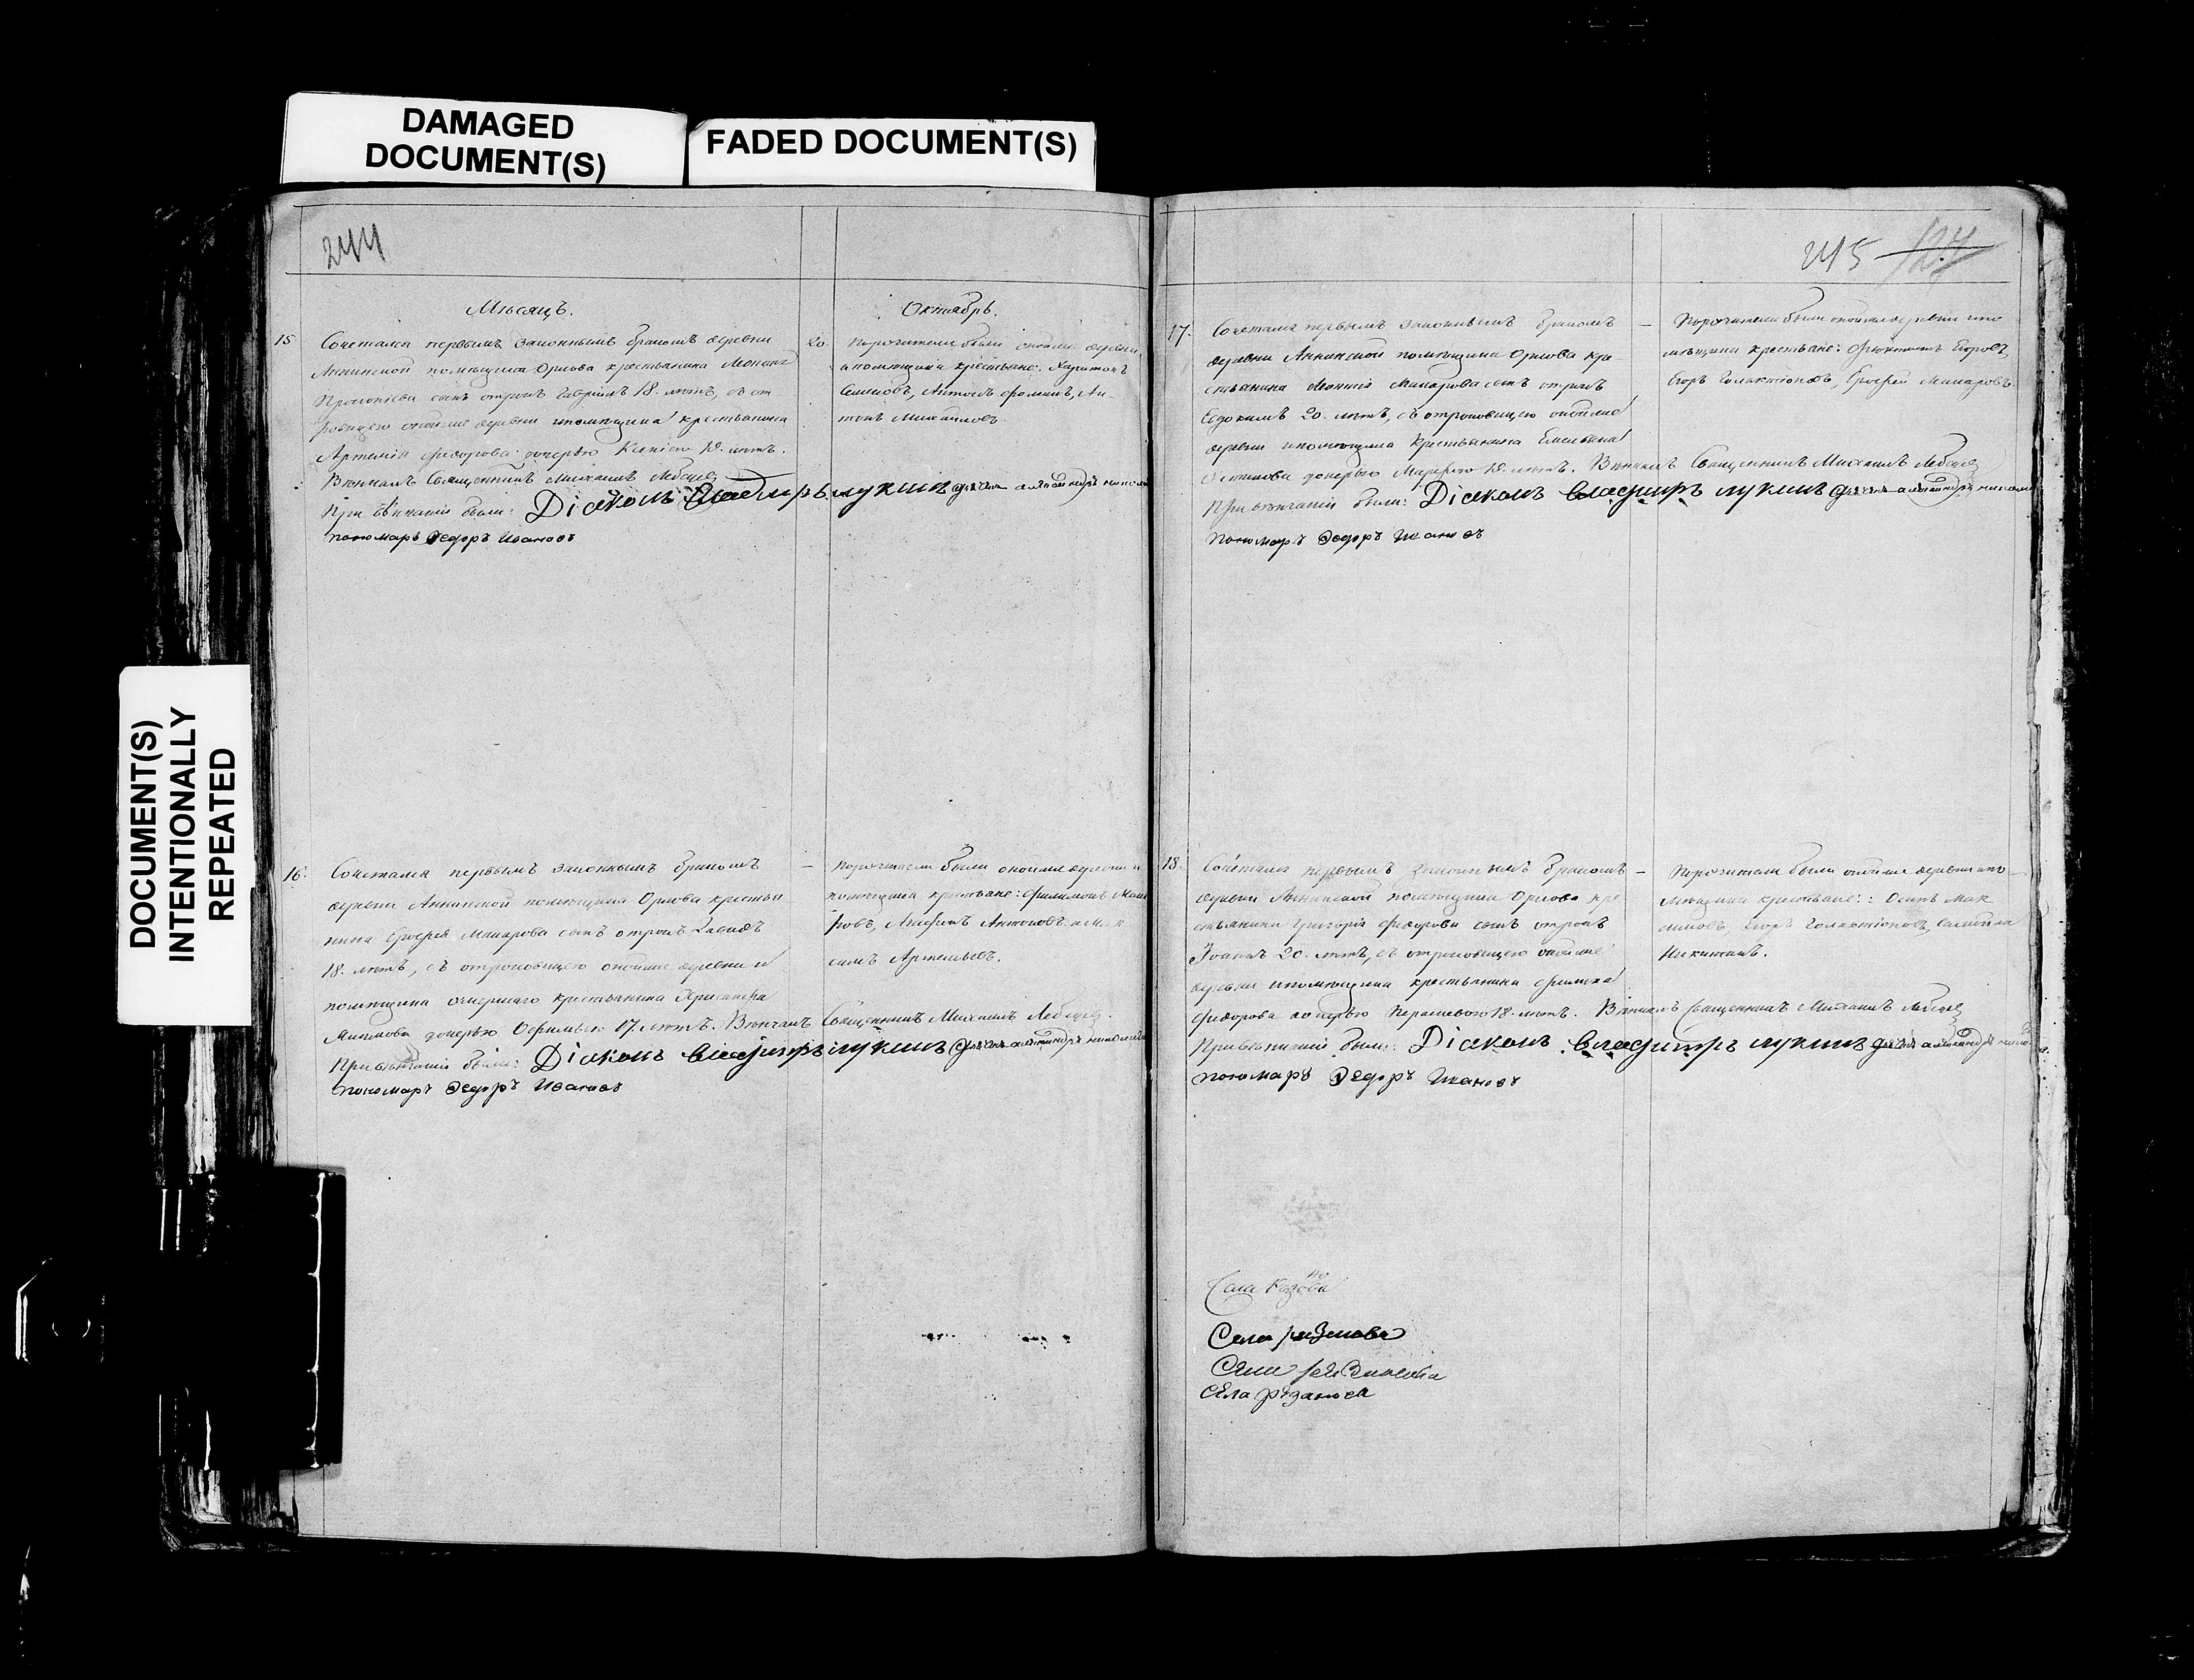 DAMAGED
DOCUMENT(S)
FADED DOCUMENT(S)
DOCUMENT(S)
INTENTIONALLY
REPEATED
244
Мѣсяцъ. Октябрь.
15 Сочетался первымъ законнымъ бракомъ деревни
Аннинской помѣщика Орлова крестьянина
Прокопіева сынъ отрокъ Гавріилъ 18. лѣтъ, съ от-
роковицею оной же деревни и помѣщика крестьянина
Артемія Федорова дочерью Ксеніею 18. лѣтъ.
Вѣнчалъ Священникъ Михаилъ Лебедев
При вѣнчаніи были: Діаконъ Владимиръ Лукинъ дьячекъ александръ
пономарь Федоръ Ивановъ
20. Поручители были оной же деревни
и помѣщика крестьяне: Харитонъ
Семеновъ, Антонъ Фоминъ, Ан-
тонъ Михайловъ
16. Сочетался первымъ законнымъ бракомъ
деревни Аннинской помѣщика Орлова крестья-
нина Ерофея Макарова сынъ отрокъ Давидъ
18. лѣтъ, съ отроковицею оной же деревни и
помѣщика умершаго крестьянина Хрисанфа
дочерью Ефимьею 17. лѣтъ. Вѣнчалъ Священникъ Михаилъ Лебедев.
При вѣнчаніи были: Діаконъ Владимиръ Лукинъ дьячекъ александръ
пономарь Федоръ Ивановъ
— Поручители были оной же деревни и
помѣщика крестьяне: Филимонъ Мака-
ровъ, Антоновъ, Мак-
симъ Артемьевъ.
245 124
17. Сочетался первымъ законнымъ бракомъ
деревни Аннинской помѣщика Орлова кре-
стьянина Макарова сынъ отрокъ
Евдокимъ 20. лѣтъ, съ отроковицею оной же
деревни и помѣщика крестьянина Емельяна
дочерью 18. лѣтъ. Вѣнчалъ Священникъ Михаилъ Лебедев
При вѣнчаніи были: Діаконъ Владимиръ Лукинъ дьячекъ александръ
пономарь Федоръ Ивановъ
— Поручители были оной же деревни и по-
мѣщика крестьяне: Феоктистъ Егоровъ,
Егоръ Галактіоновъ, Ерофей Макаровъ.
18. Сочетался первымъ законнымъ бракомъ
деревни Аннинской помѣщика Орлова кре-
стьянина Григорія Федорова сынъ отрокъ
Іоаннъ 20. лѣтъ, съ отроковицею оной же
деревни и помѣщика крестьянина
Федорова дочерью 18. лѣтъ. Вѣнчалъ Священникъ Михаилъ Лебедев
При вѣнчаніи были: Діаконъ Владимиръ Лукинъ дьячекъ александръ
пономарь Федоръ Ивановъ
— Поручители были оной же деревни и по-
мѣщика крестьяне: Осипъ Мак-
симовъ, Егоръ Галактіоновъ, Самойла
Никитинъ.
Села
Села
Села
Села